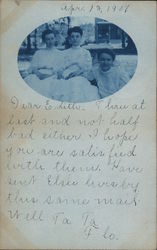 Apr 13, 1908
Dear I am at
last and not half
bad either. I hope
you are satisfied
with them. Have
sent Elsie hers by
this same mail
Well Ta Ta